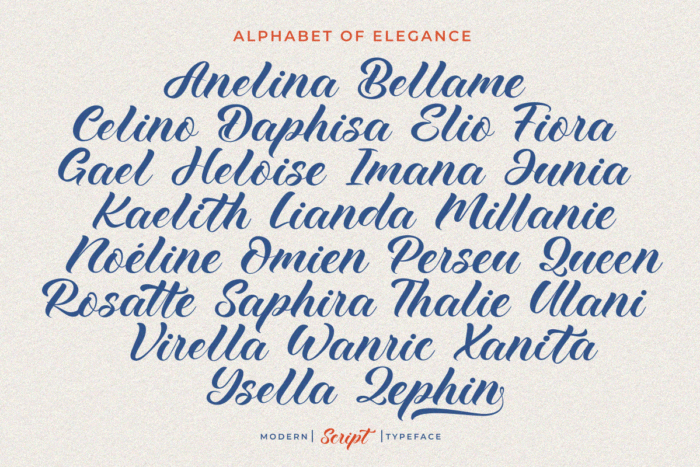 ALPHABET OF ELEGANCE
Anelina Bellame
Celino Daphisa Elio Fiora
Gael Heloise Imana Junia
Kaelith Lianda Millanie
Noéline Omien Perseu Queen
Rosatte Saphira Thalie Ulani
Virella Wanric Xanita
Ysella Zephin
MODERN| Script |TYPEFACE